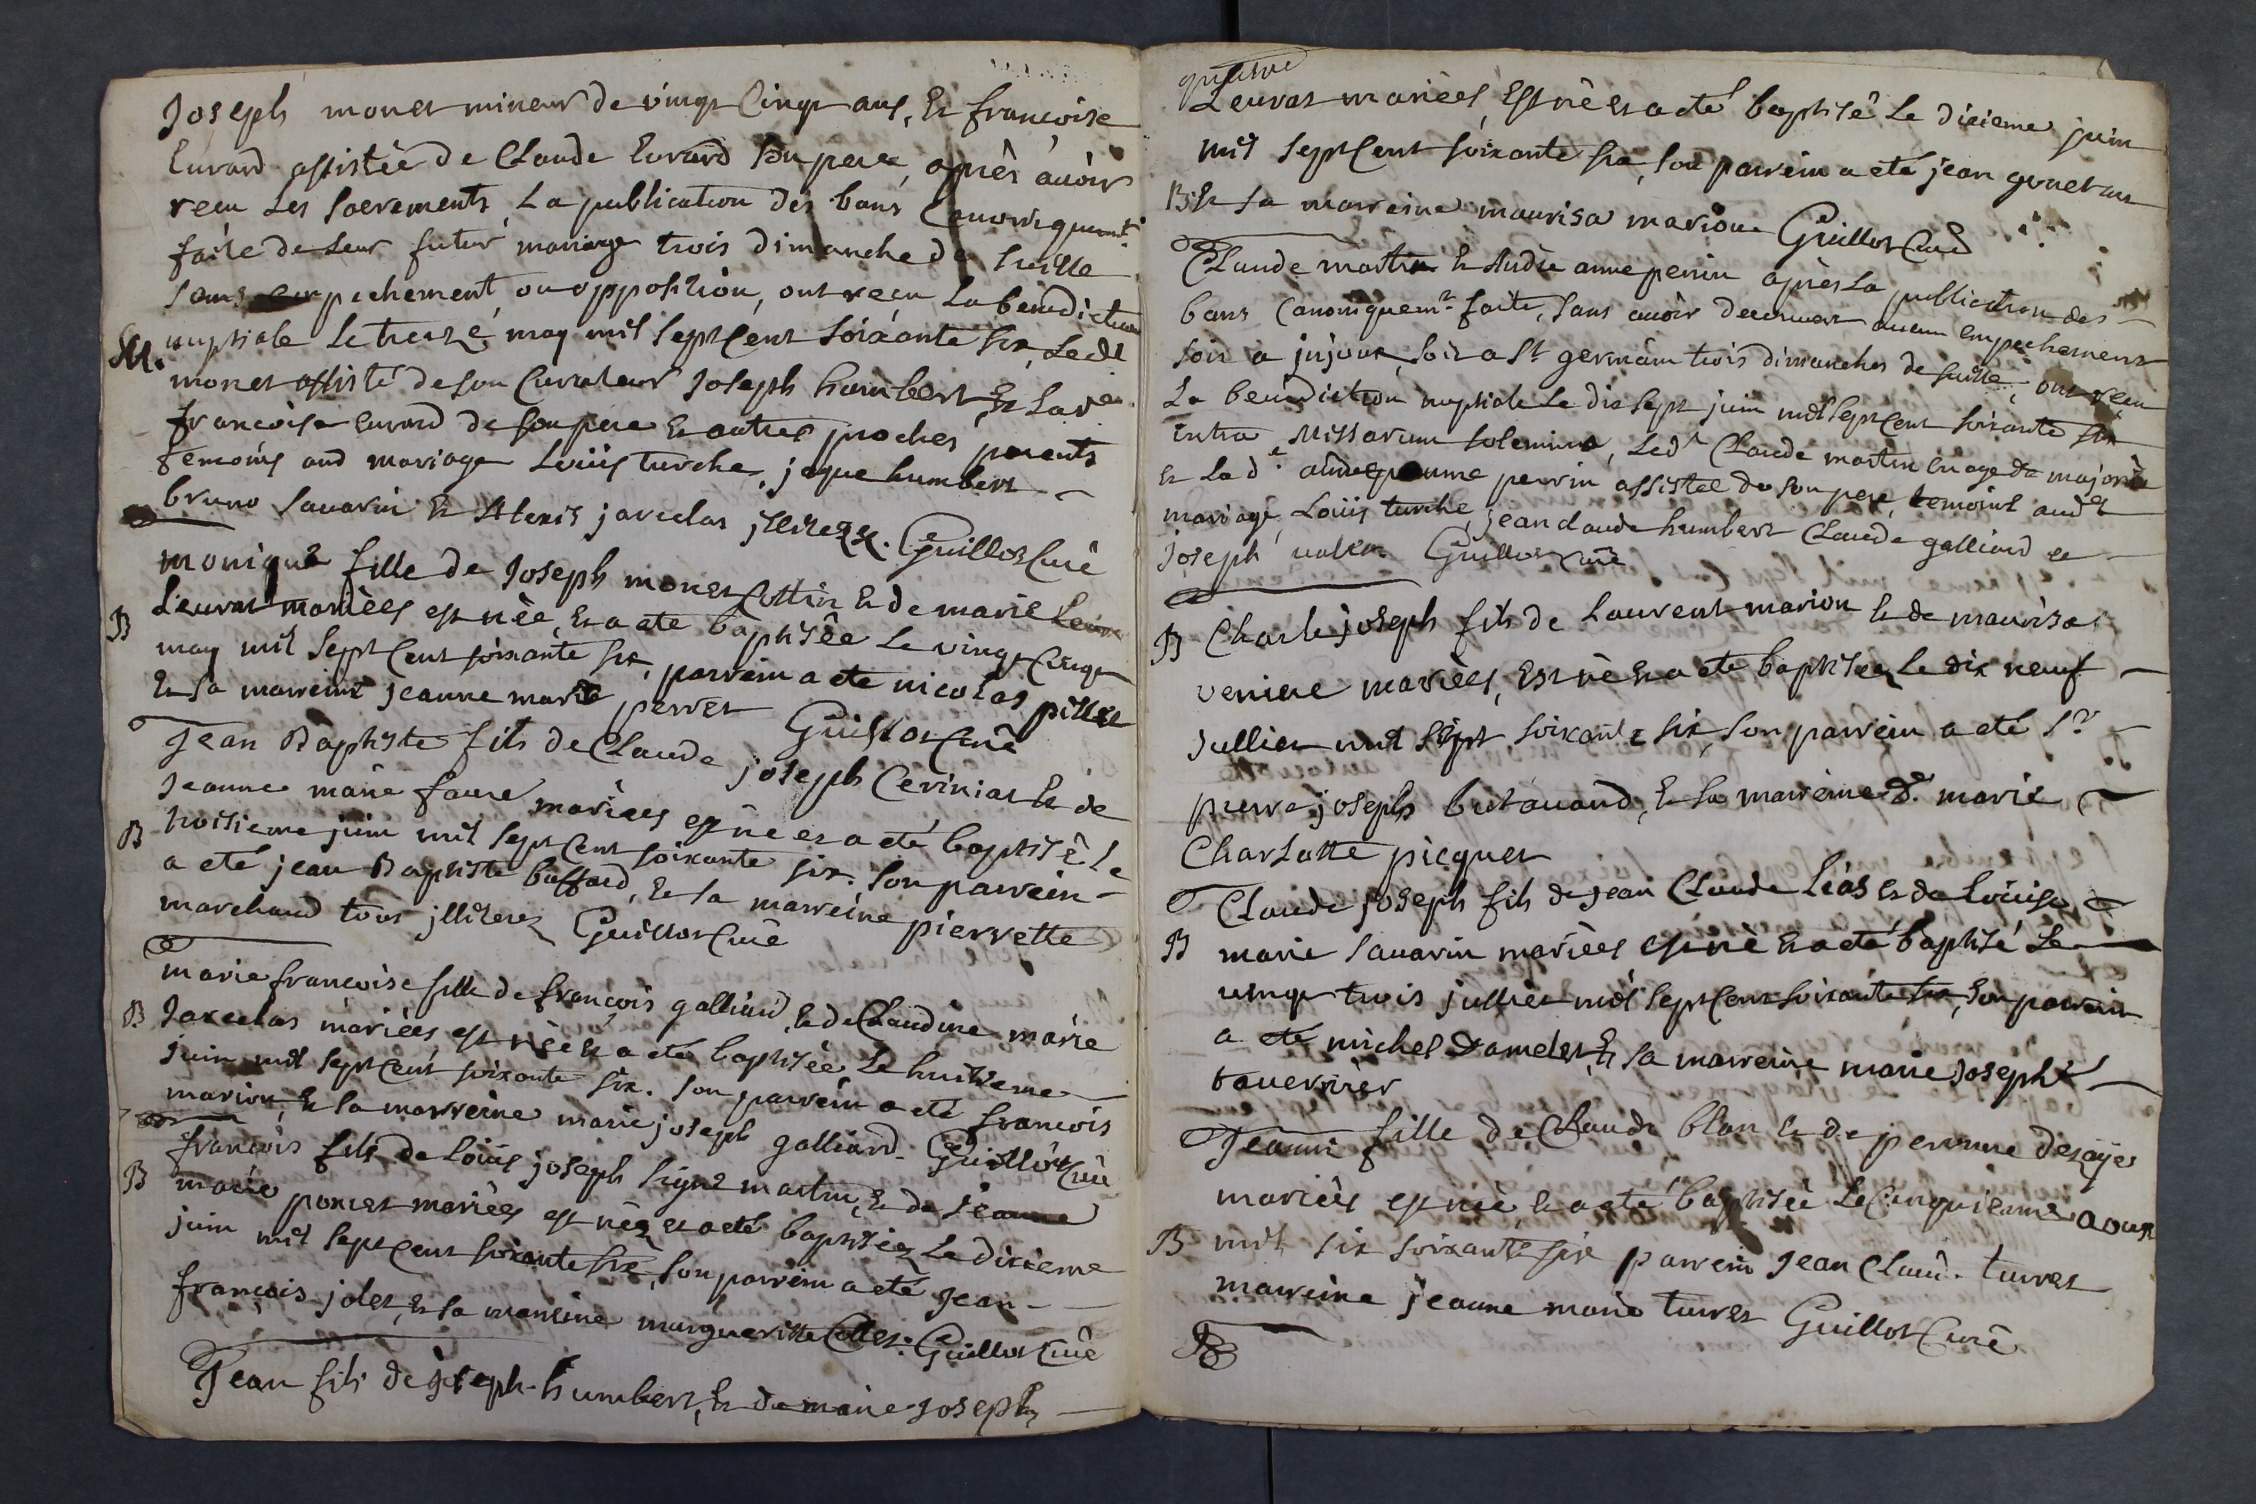 Joseph monet mineur de vingt cinq ans, Et francoise
Euvrard assistée de Claude Euvrard son pere, après avoir
recu les sacrements, La publication des bans Canoniquemt
faite de leur futur mariage trois dimanche de suitte
sans empechement ou opposition, ont recu La bénédiction
M. nuptiale le treize may mil sept cent soixante six, Ledt
monet assisté de son Curateur Joseph humbert, Et la de
francoise Evrard de son pere Et autres proches parents
temoins aud mariage Loüis turche, jaque humbert
bruno savarin Et Alexis jarcelas jllitez. Guillot Curé
monique fille de Joseph monet Cottin Et de marie
B Leuvrat mariées est née, Et a ete baptisée Le vingt Cinq
may mil sept cent soixante six, parrein a ete nicolas
Et sa marreine jeanne marie perret Guillot Curé
Jean Baptiste fils de Claude joseph Ceriniat Et de
Jeanne marie favre mariées est né et a eté baptisé le
B troisieme juin mil sept cent soixante six. Son parrein
a eté jean Baptiste baffard, Et sa marreine pierrette
marchand tous jlliterez Guillot Curé
marie francoise fille de francois galliard, Et de Claudine marie
B Jarcelas mariées, est née Et a eté baptisée Le huitieme
juin mil sept cent soixante six. Son parrein a eté francois
marion, Et sa marreine marie joseph galliard. Guillot Curé
francois fils de Loüis joseph martin, Et de Jeanne
B marie poncet mariées est née et a eté baptisée Le dixieme
juin mil sept cent soixante six, Son parrein a eté Jean
francois jolet, Et sa marreine margueritte Collet. Guillot Curé
Jean fils de joseph humbert, Et de marie Joseph
Leuvrat mariées, Est né Et a eté baptisé Le dixieme juin
mil sept Cent soixante six, Son parrein a eté jean
B Et sa marreine maurisa marion Guillot Curé
Claude martin Et Anne perrin après La publication des
bans Canoniquemt faite, sans avoir decouvert aucun empechement
soit a jnjoux, soit a St germain trois dimanches de suitte, ont recu
La benediction nuptiale Le dix sept juin mil sept cent soixante six
intra Missarum solemnia, Ledt Claude martin en age de majorité
Et La de anne perrin assistée de son pere, temoins audt
mariage, Loüis turche, jean claude humbert Claude galliard et
Joseph Guillot Curé
B Charle joseph fils de Laurent marion Et de maurisa
veniere mariées, Est né Et a ete baptisée Le dix neuf
Jullien mil sept soixante six, Son parrein a eté Sr
pierre joseph butavand, Et sa marreine De marie
Charlotte picquet
Claude joseph fils de jean Claude Léas et de Loüise
B marie savarin mariées est né Et a eté baptisé Le
vingt trois jullien mil sept Cent soixante six, Son parrein
a eté michel Et sa marreine marie Joseph
tavernier
Jeanne fille de Claude blan Et de perrine desaÿe
mariées est née, Et a eté baptisée Le Cinquieme aoust
B mil six soixante six parrein Jean Claud. turret
marreine jeanne marie turret Guillot Curé